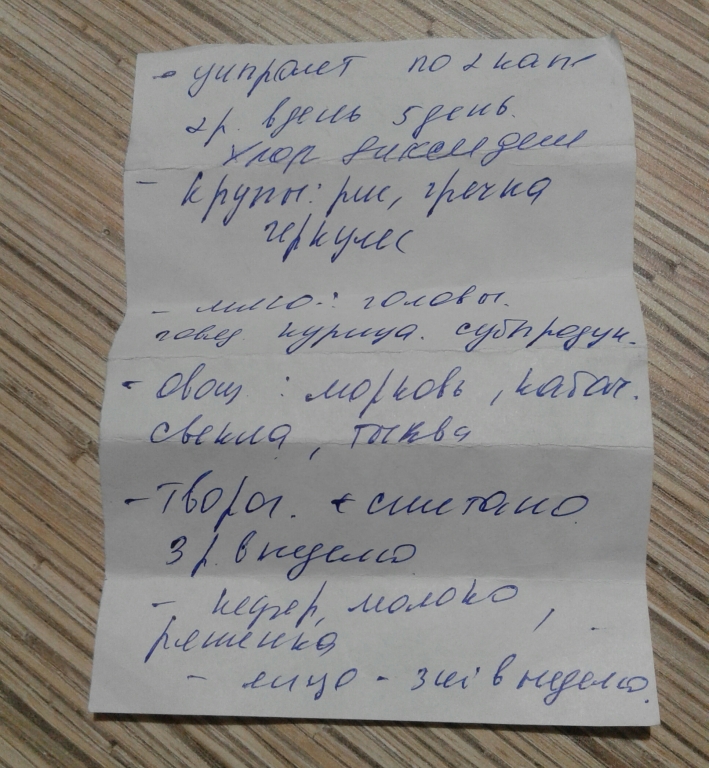 - ципролет по 2 кап
2 р. в день 5 день.
хлор
- Крупы: рис, гречка
геркулес
- мясо: головы.
говяд. курица. субпродук.
- овощ : морковь, кабач.
свекла, тыква
- Творог. + сметана
3 р. в неделю
- кефир, молоко,
ряженка
- яйцо - 3 шт в неделю.